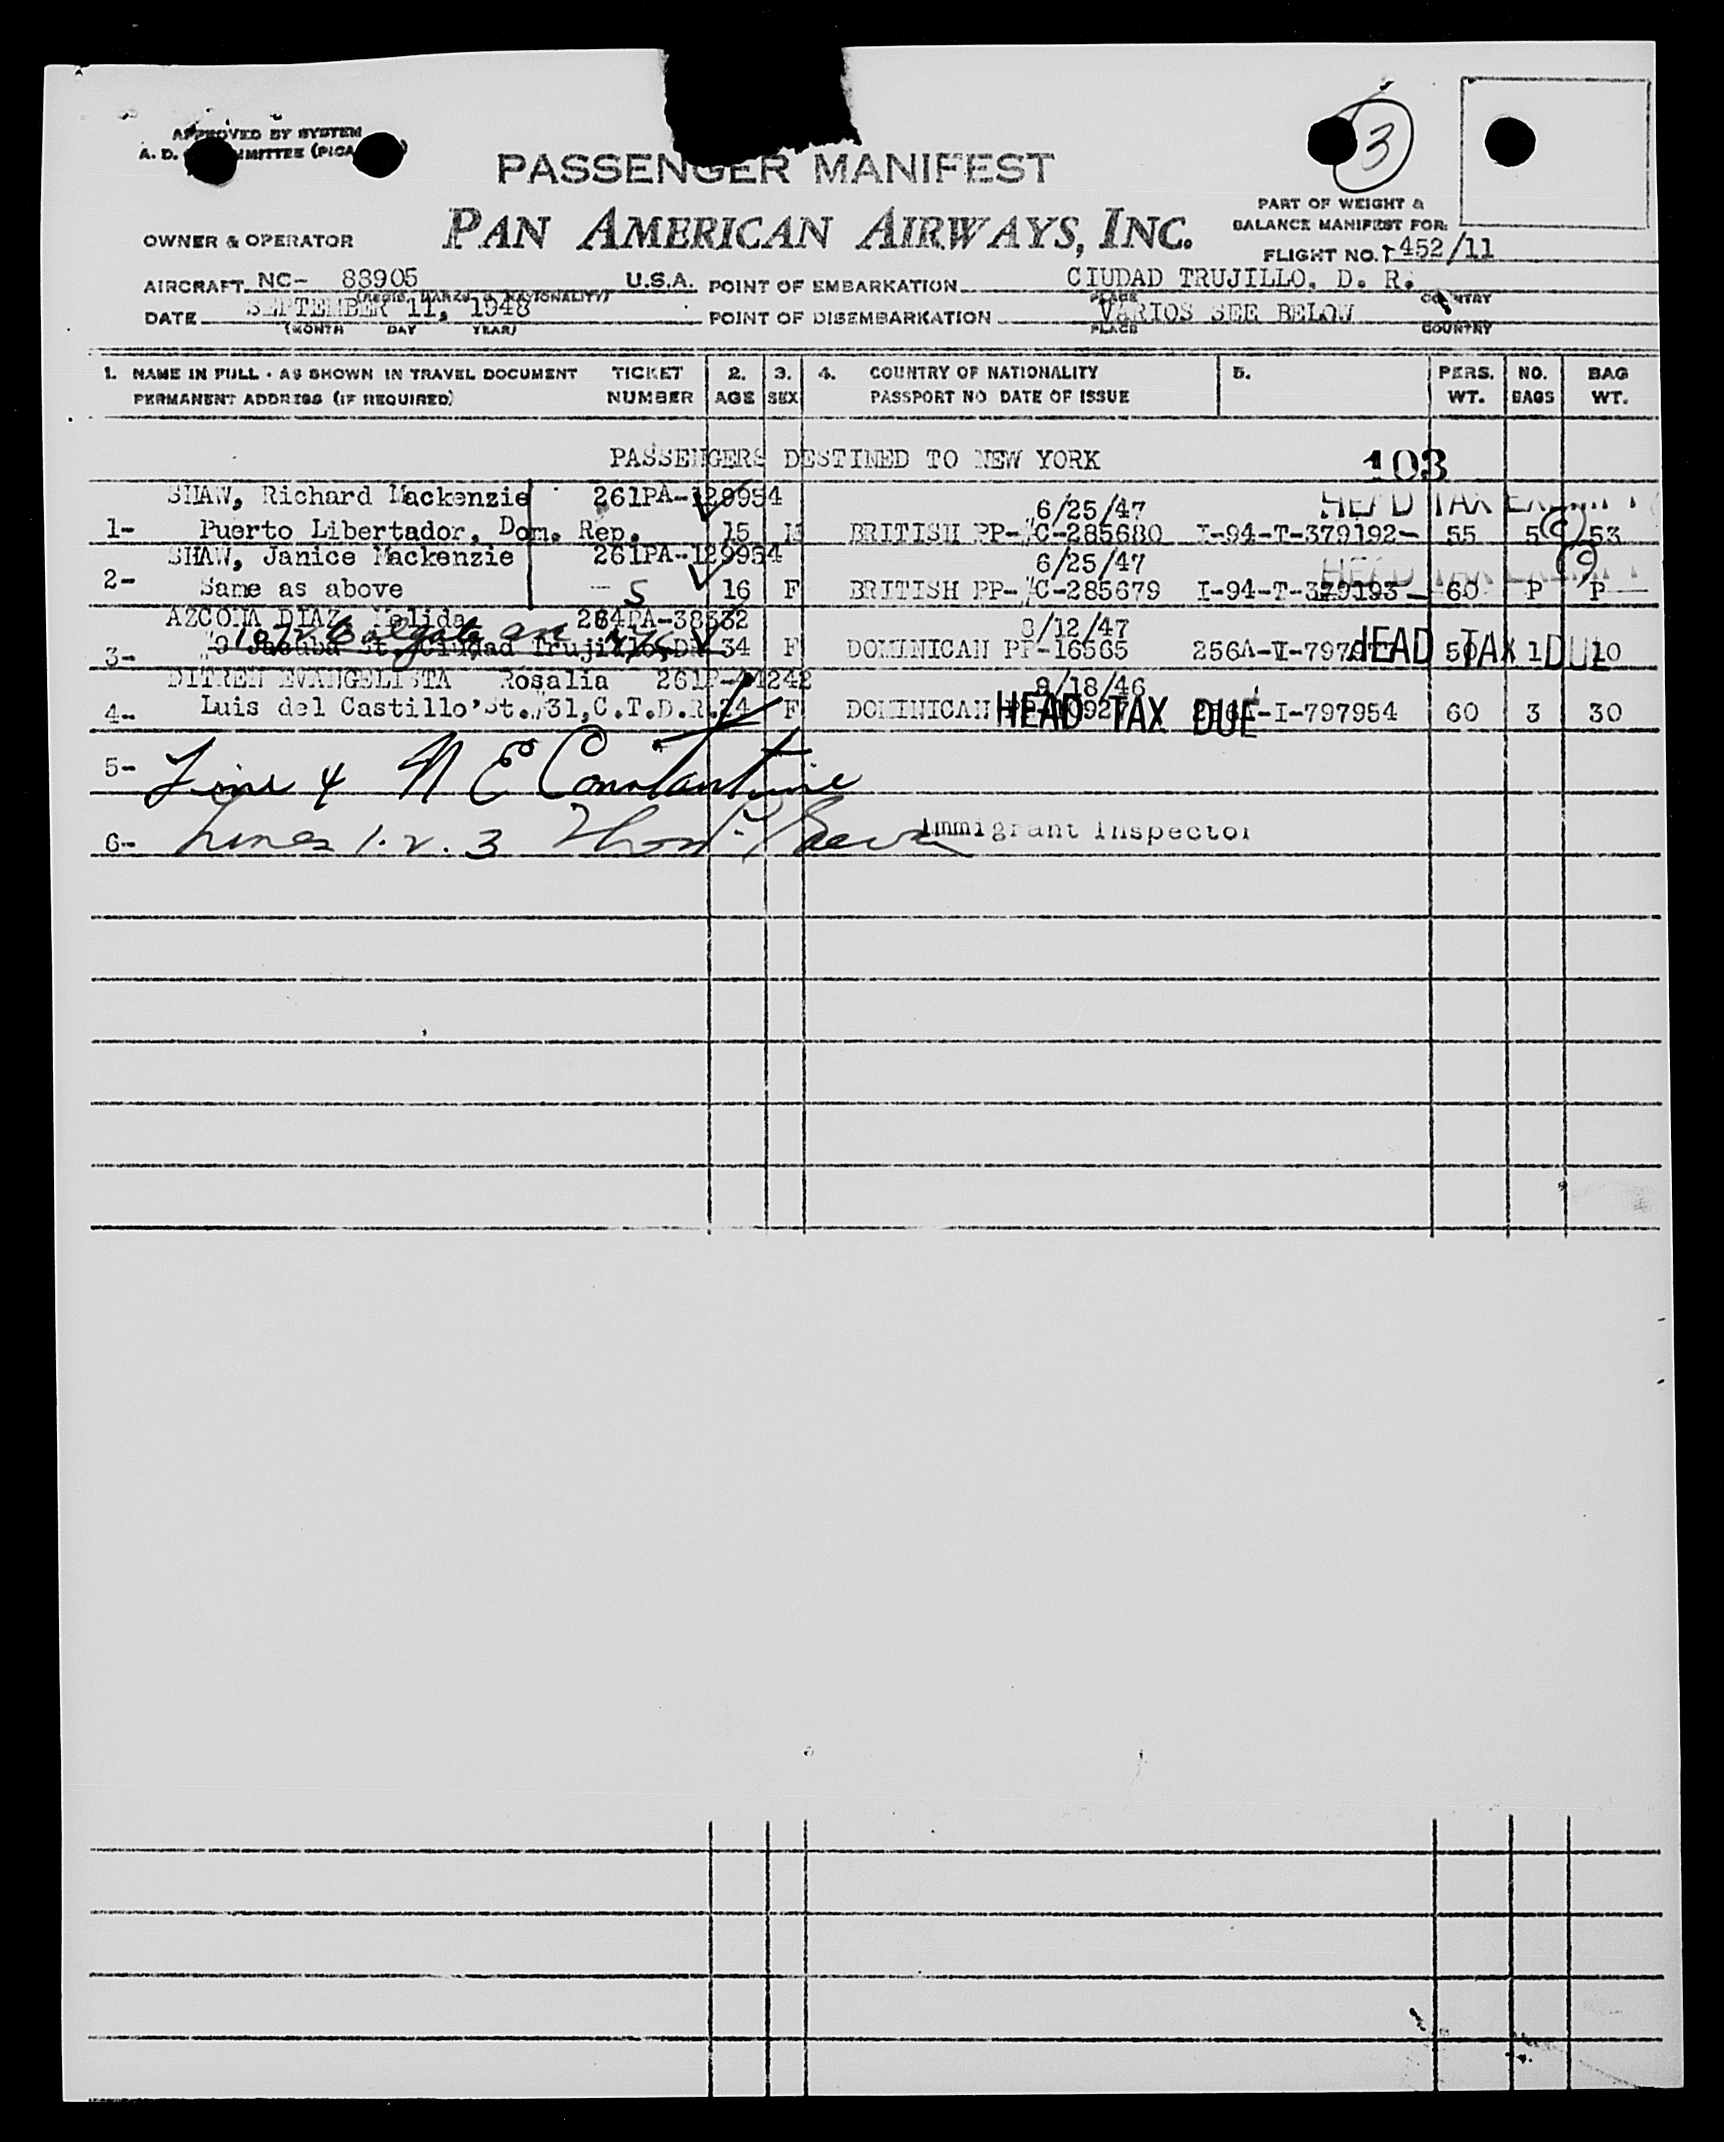 3
APPROVED BY SYSTEM
A. D.
PASSENGER MANIFEST
PART OF WEIGHT &
BALANCE MANIFEST FOR:
OWNER & OPERATOR PAN AMERICAN AIRWAYS, INC.
FLIGHT NO. 452/11
AIRCRAFT NC- 88905 U.S.A. POINT OF EMBARKATION CIUDAD TRUJILLO, D. R.
PLACE COUNTRY
DATE SEPTEMBER 11, 1948 POINT OF DISEMBARKATION VARIOS SEE BELOW
(MONTH DAY YEAR) PLACE COUNTRY
1. NAME IN FULL - AS SHOWN IN TRAVEL DOCUMENT TICKET 2. 3. 4. COUNTRY OF NATIONALITY 5. PERS. NO. BAG
PERMANENT ADDRESS (IF REQUIRED) NUMBER AGE SEX PASSPORT NO DATE OF ISSUE WT. BAGS WT.
PASSENGERS DESTINED TO NEW YORK 103
SHAW, Richard Mackenzie 261PA-129954 6/25/47 HEAD TAX EXEMPT
1- Puerto Libertador, Dom. Rep. 15 M BRITISH PP-#C-285680 I-94-T-379192- 55 5 53
SHAW, Janice Mackenzie 261PA-129954 6/25/47 HEAD TAX EXEMPT
2- Same as above 5 16 F BRITISH PP-#C-285679 I-94-T-379193 60 P P
AZCONA DIAZ, 264PA-38532 8/12/47
3- St. Ciudad Trujillo, DR 34 F DOMINICAN PP-16565 256A- HEAD TAX DUE 50 1 10
DITREN EVANGELISTA Rosalia 261P-44242 9/18/46
4- Luis del Castillo St. #31, C.T.D.R. 24 F DOMINICAN HEAD TAX DUE -I-797954 60 3 30
5- Line 4 N E Constantine
6- Lines 1. 2. 3 Immigrant Inspector